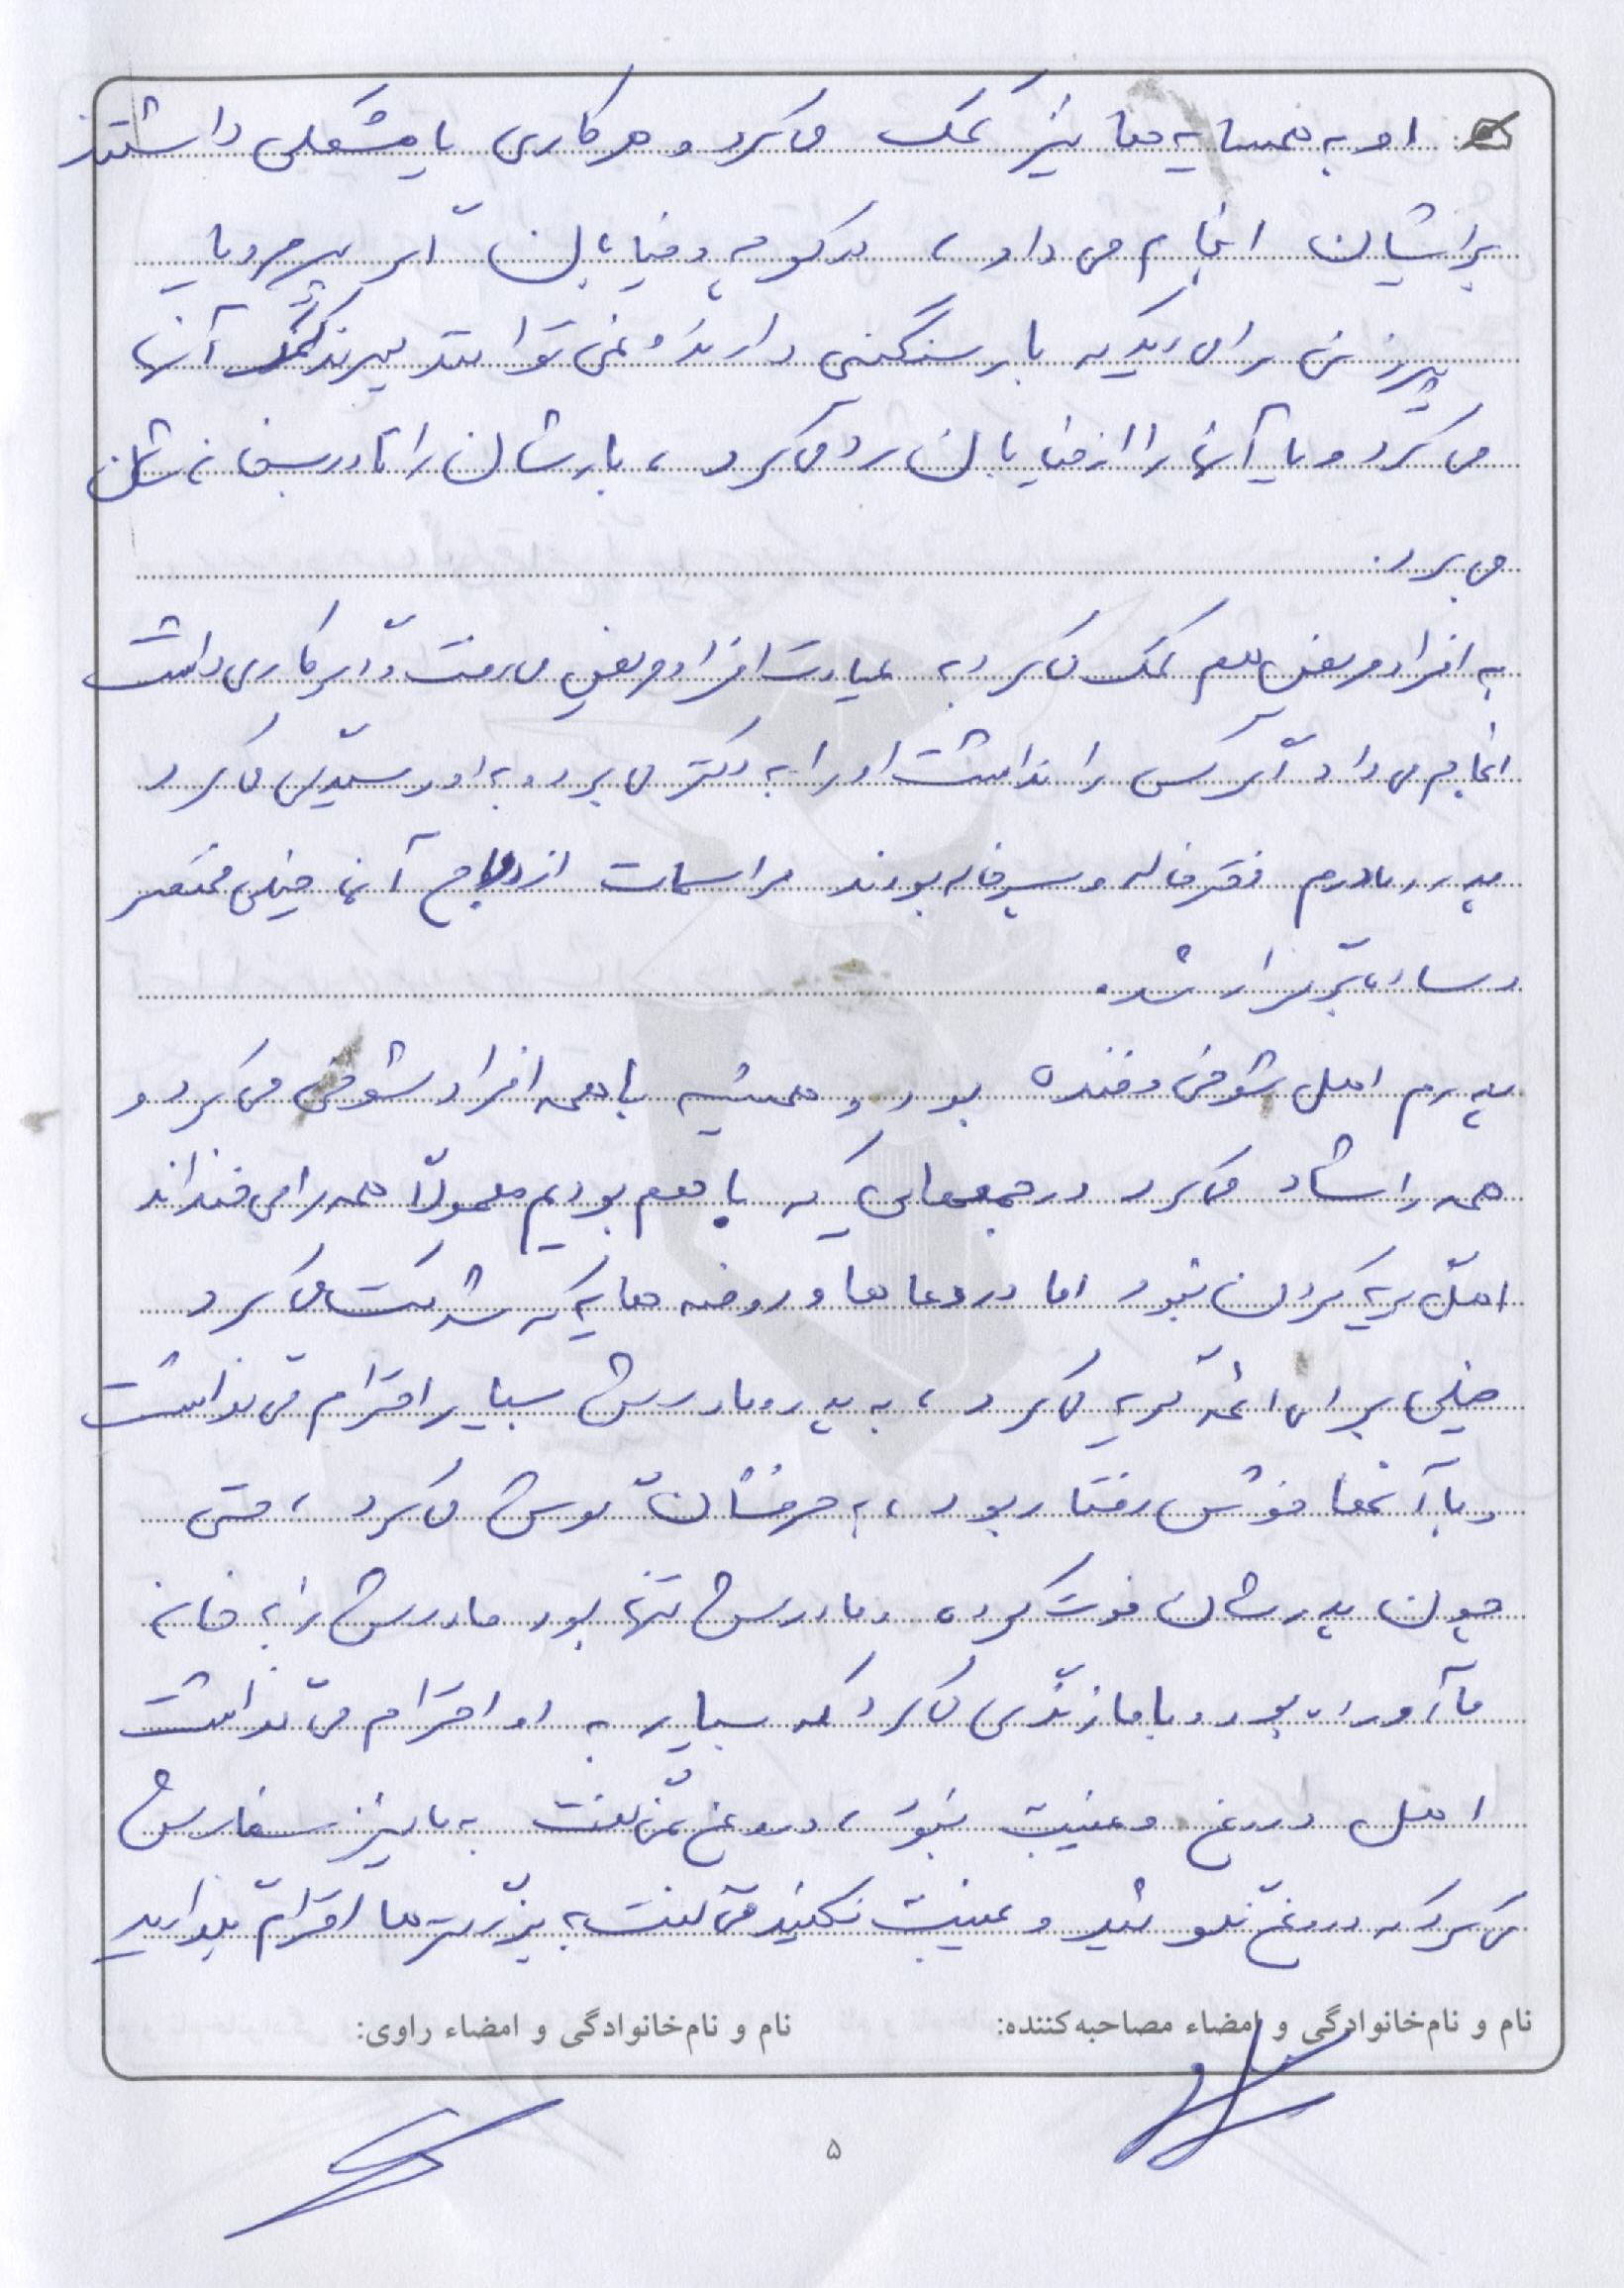 او به همسایه ها نیز کمک می کرد و هر کاری یا مشکلی داشتند
برایشان انجام می داد ، در کوچه و خیابان اگر پیرمرد یا
پیرزنی را می دید که بار سنگینی دارند و نمی توانند ببرند کمک آنها
می کرد و یا آنها را از خیابان رد می کرد ، بارشان را تا درب خانه شان
می برد.
به افراد مریض هم کمک می کرد به عیادت افراد مریض می رفت و اگر کاری داشت
انجام می داد و اگر کسی را نداشت او را به دکتر می برد و به او رسیدگی می کرد
پدر و مادرم دختر خاله و پسر خاله بودند مراسمات ازدواج آنها خیلی مختصر
و ساده برگزار شد.
پدرم اهل شوخی و خنده بود و همیشه با همه افراد شوخی می کرد و
همه را شاد می کرد در جمعهایی که با هم بودیم معمولاً همه را می خنداند
اهل گریه کردن نبود اما در دعاها و روضه هایی که شرکت می کرد
خیلی برای ائمه گریه می کرد ، به پدر و مادرش بسیار احترام می گذاشت
و با آنها خوش رفتار بود ، به حرفشان گوش می کرد ، حتی
چون پدرشان فوت کرده و مادرش تنها بود مادرش را به خانه
ما آورده بود و با ما زندگی می کرد که بسیار به او احترام می گذاشت
اهل دروغ و غیبت نبود ، دروغ نمی گفت به ما نیز سفارش
می کرد که دروغ نگوئید و غیبت نکنید می گفت به بزرگترها احترام بگذارید
نام و نام‌خانوادگی و امضاء مصاحبه‌کننده:
نام و نام‌خانوادگی و امضاء راوی:
۵